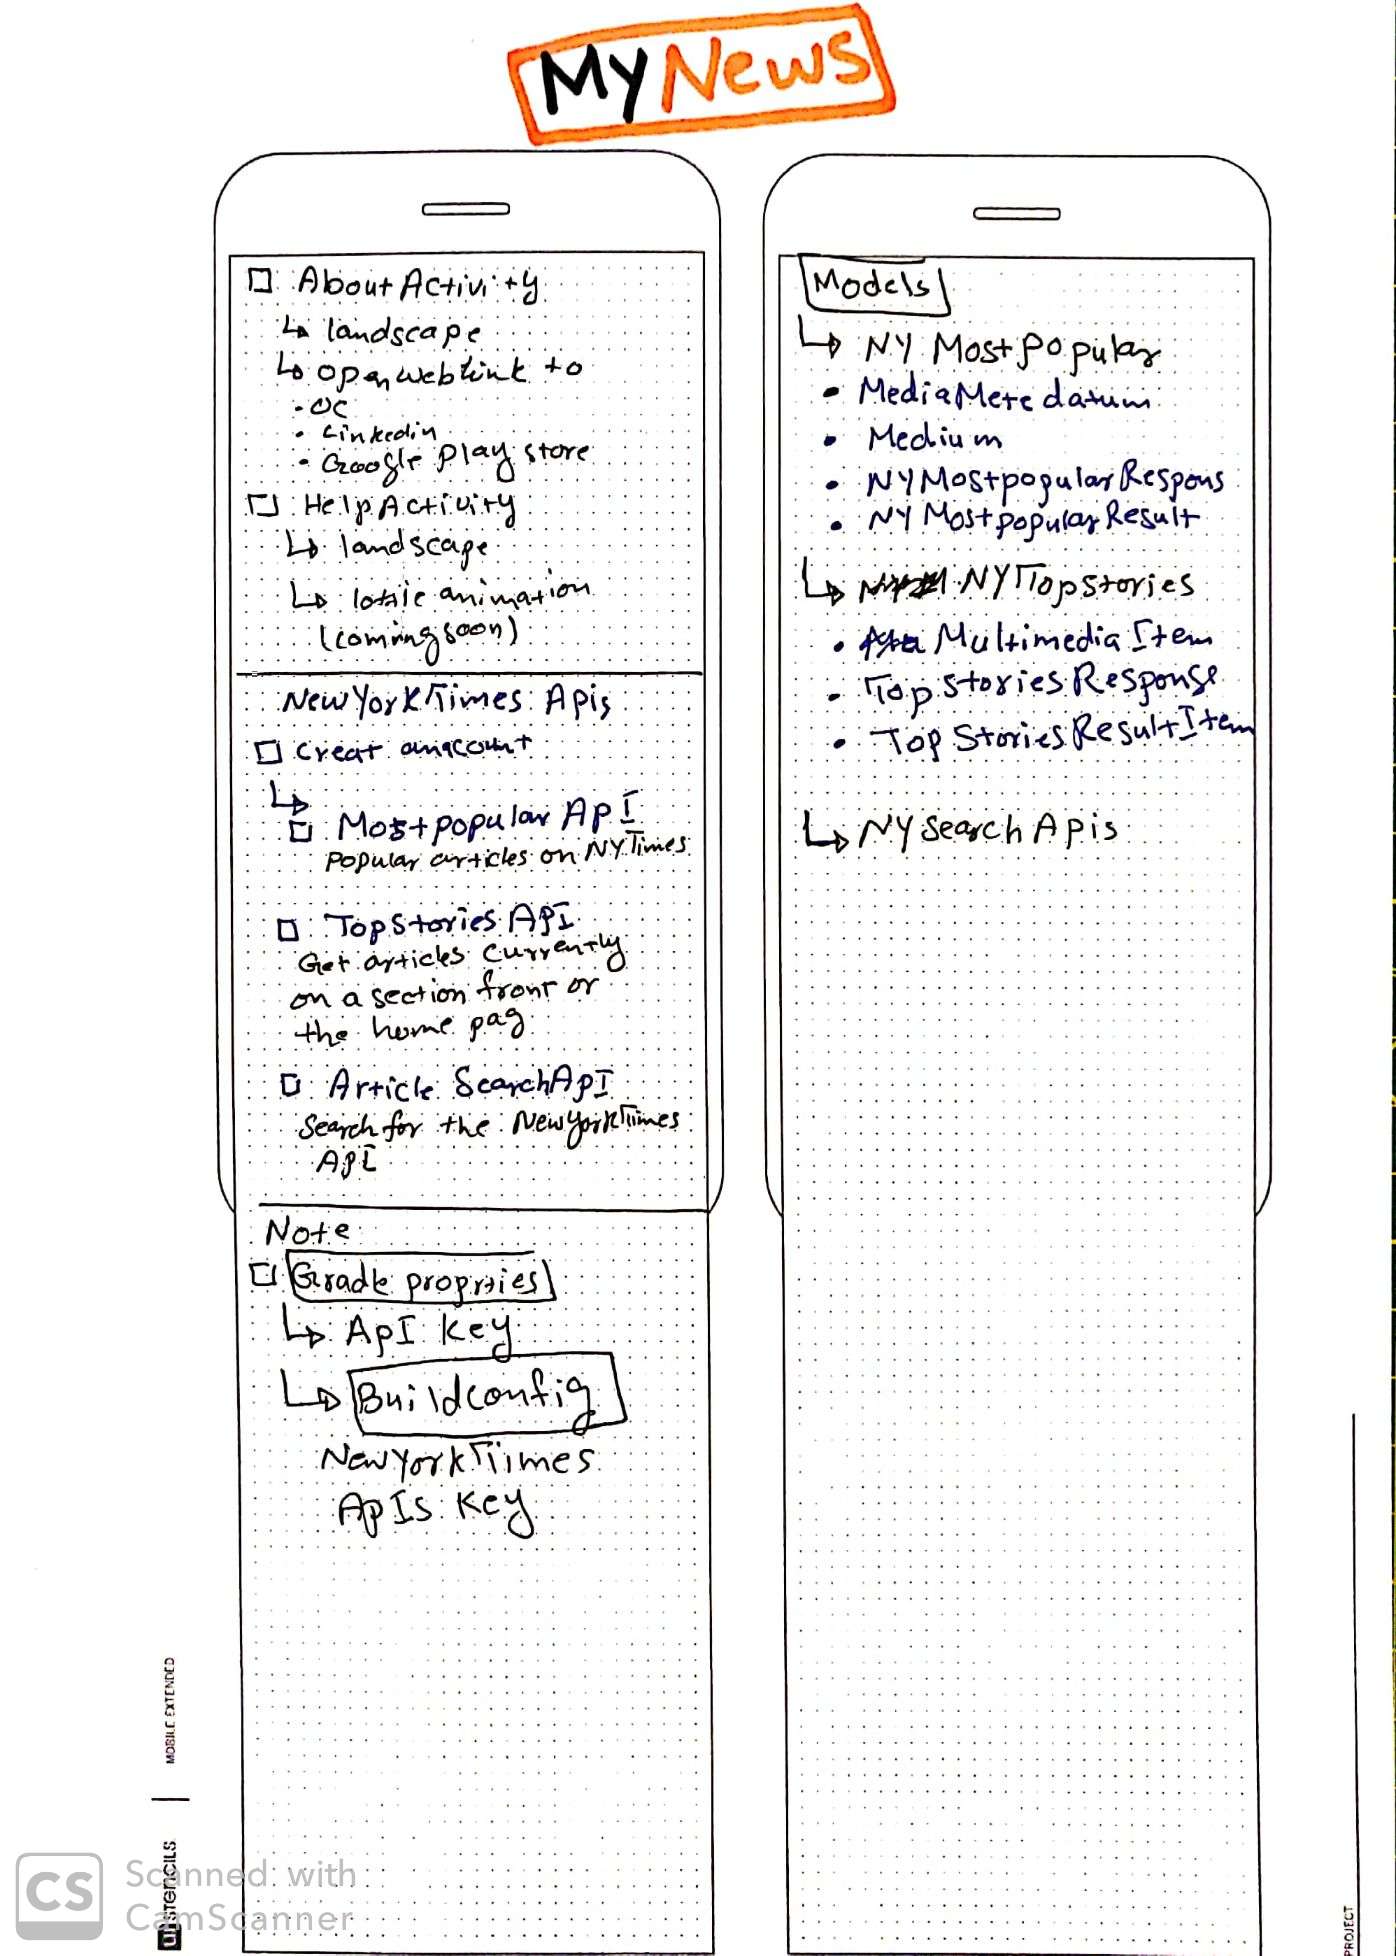 MyNews
About Activity
landscape
open web link to
OC
Linkedin
Google Play store
Help Activity
landscape
lottie animation
(coming soon)
New York Times Apis
Creat an account
Most popular ApI
popular articles on NY Times
Top Stories ApI
Get articles currently
on a section front or
the home pag
Article Search ApI
Search for the New York Times
ApI
Note
Gradle proprties
ApI Key
Buildconfig
New York Times
ApIs Key
Models
NY Most popular
MediaMetedatum
Medium
NYMostpopularRespons
NYMostpopularResult
NYTopStories
MultimediaItem
TopStoriesResponse
TopStoriesResultItem
NYSearchApis
MOBILE EXTENDED
UI STENCILS
PROJECT
CS
Scanned with
CamScanner